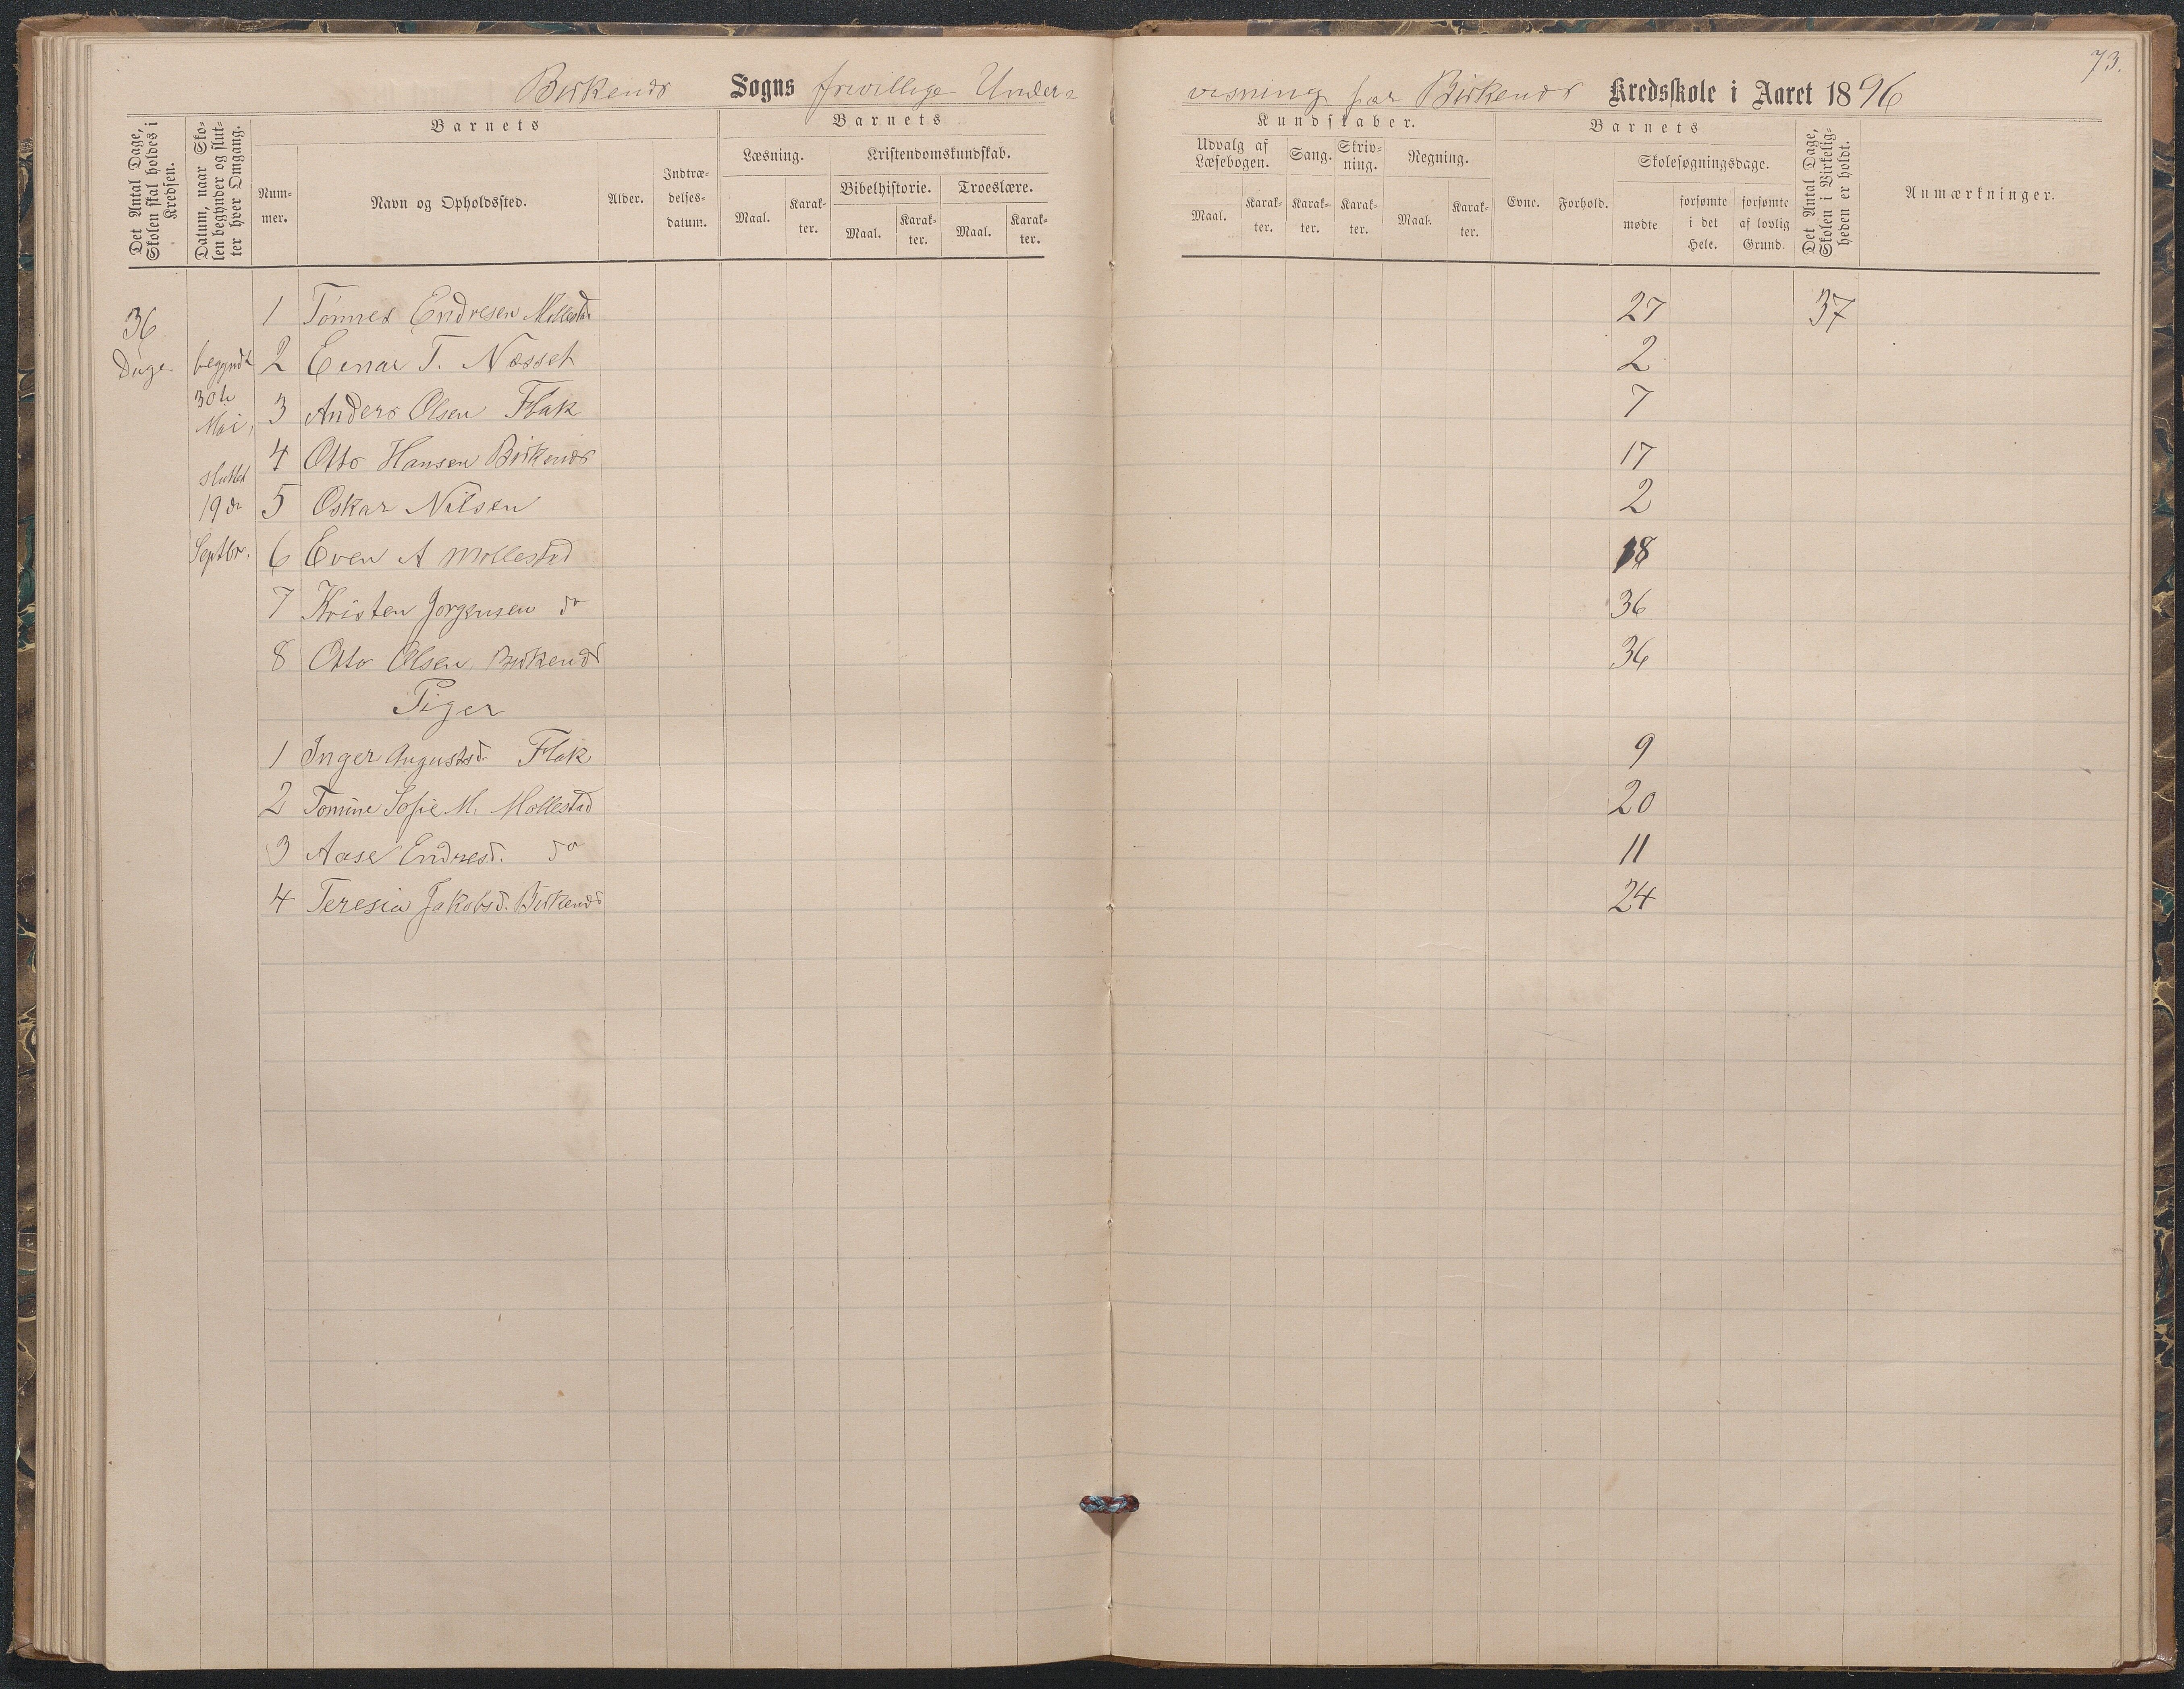 73.
Birkenæs Sogns frivillige Under=
visning for Birkenæs Kredsskole i Aaret 1896
Det Antal Dage,
Skolen skal holdes i
Kredsen.
Datum, naar Sko-
len begynder og slut-
ter hver Omgang.
Barnets
Num-
mer.
Navn og Opholdssted.
Alder.
Indtræ-
delses-
datum.
Barnets
Læsning.
Maal.
Karak-
ter.
Kristendomskundskab.
Bibelhistorie.
Maal.
Karak-
ter.
Troeslære.
Maal.
Karak-
ter.
Kundskaber.
Udvalg af
Læsebogen.
Maal.
Karak-
ter.
Sang.
Karak-
ter.
Skriv-
ning.
Karak-
ter.
Regning.
Maal.
Karak-
ter.
Barnets
Evne.
Forhold.
Skolesøgningsdage.
mødte
forsømte
i det
Hele.
forsømte
af lovlig
Grund.
Det Antal Dage,
Skolen i Virkelig-
heden er holdt.
Anmærkninger.
36
Dage
begyndt
30te
Mai,
sluttet
19de
Septbr.
1 Tønnes Endresen Mollestad 27 37
2 Einar T. Næsset 2
3 Anders Olsen Flak 7
4 Otto Hansen Birkenæs 17
5 Oskar Nilsen 2
6 Even A Mollestad 18
7 Kristen Jørgensen do 36
8 Otto Olsen, Birkenæs 36
Piger
1 Inger Augustsd. Flak 9
2 Tomine Sofie M. Mollestad 20
3 Aase Endresd. do 11
4 Teresia Jakobsd. Birkenæs 24